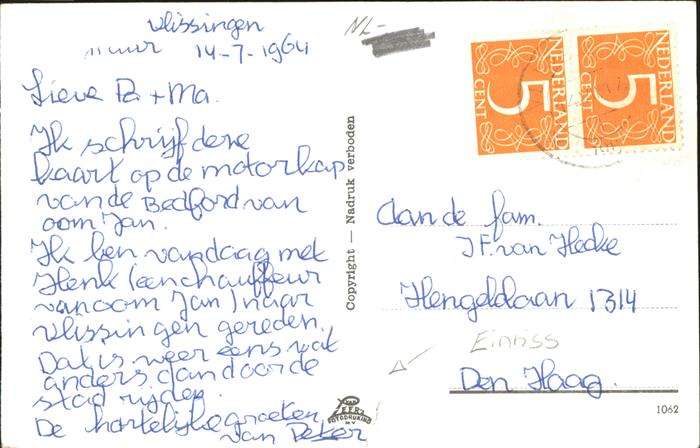 Vlissingen
uur 14-7-1964
Lieve Pa + Ma.
Ik schrijf deze
kaart op de motorkap
van de Bedford van
oom Jan.
Ik ben vandaag met
Henk (een chauffeur
van oom Jan) naar
Vlissingen gereden.
Dat is weer eens wat
anders dan door de
stad rijden.
De hartelijke groeten,
van Peter
Copyright — Nadruk verboden
VAN
LEER'S
FOTODRUKIND
N.V.
NL-
NEDERLAND
5
CENT
NEDERLAND
5
CENT
Aan de fam.
J.F. van Hecke
Hengelolaan 1314
Einriss
Den Haag.
1062